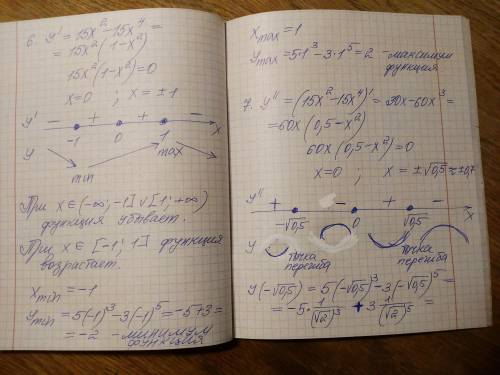 6. y' = 15x² - 15x⁴ =
= 15x²(1-x²)
15x²(1-x²)=0
x=0 ; x = ±1
y' - + + -
-1 0 1 x
y min max
При x ∈ (-∞; -1] ∪ [1; +∞)
функция убывает.
При x ∈ [-1; 1] функция
возрастает.
x min = -1
y min = 5(-1)³ - 3(-1)⁵ = -5+3 =
= -2 - минимум
функция
x max = 1
y max = 5·1³ - 3·1⁵ = 2 - максимум
функция
7. y'' = (15x² - 15x⁴)' = 30x - 60x³ =
= 60x(0,5 - x²)
60x(0,5 - x²) = 0
x=0 ; x = ±√0,5 ≈ ±0,7
y'' + - + -
-√0,5 0 √0,5 x
y точка точка
перегиба перегиба
y(-√0,5) = 5(-√0,5)³ - 3(-√0,5)⁵ =
= -5· 1/(√2)³ + 3 1/(√2)⁵ =